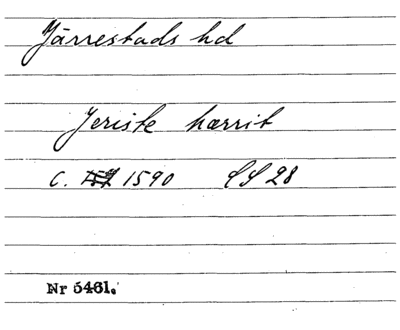 Järrestads hd
Jeriste hærrit
c. 1590 SS 28
Nr 5461.